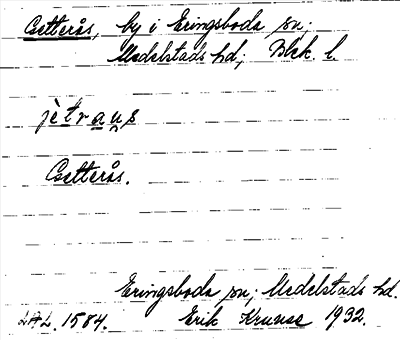 Getterås, by i Eringsboda sn;
Medelstads hd; Blek. l.
jètrau̯s
Getterås.
Eringsboda sn; Medelstads hd.
LAL. 1584. Erik Kruuse 1932.